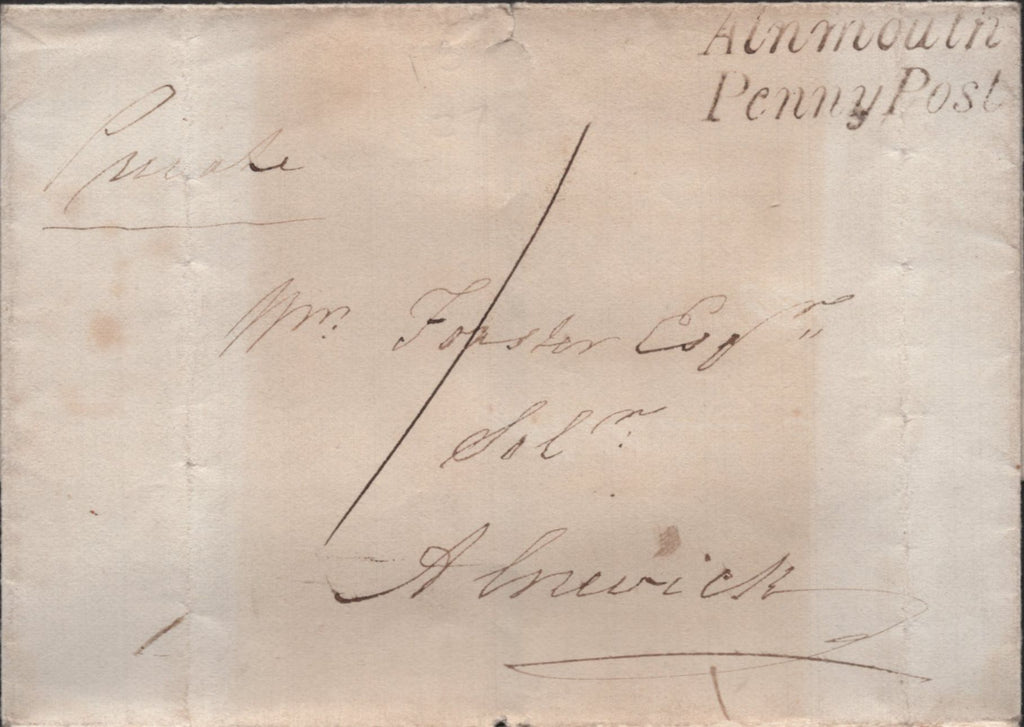 Alnmouth
Penny Post
Private
Wm. Forster Esqr.
Solr.
Alnwick